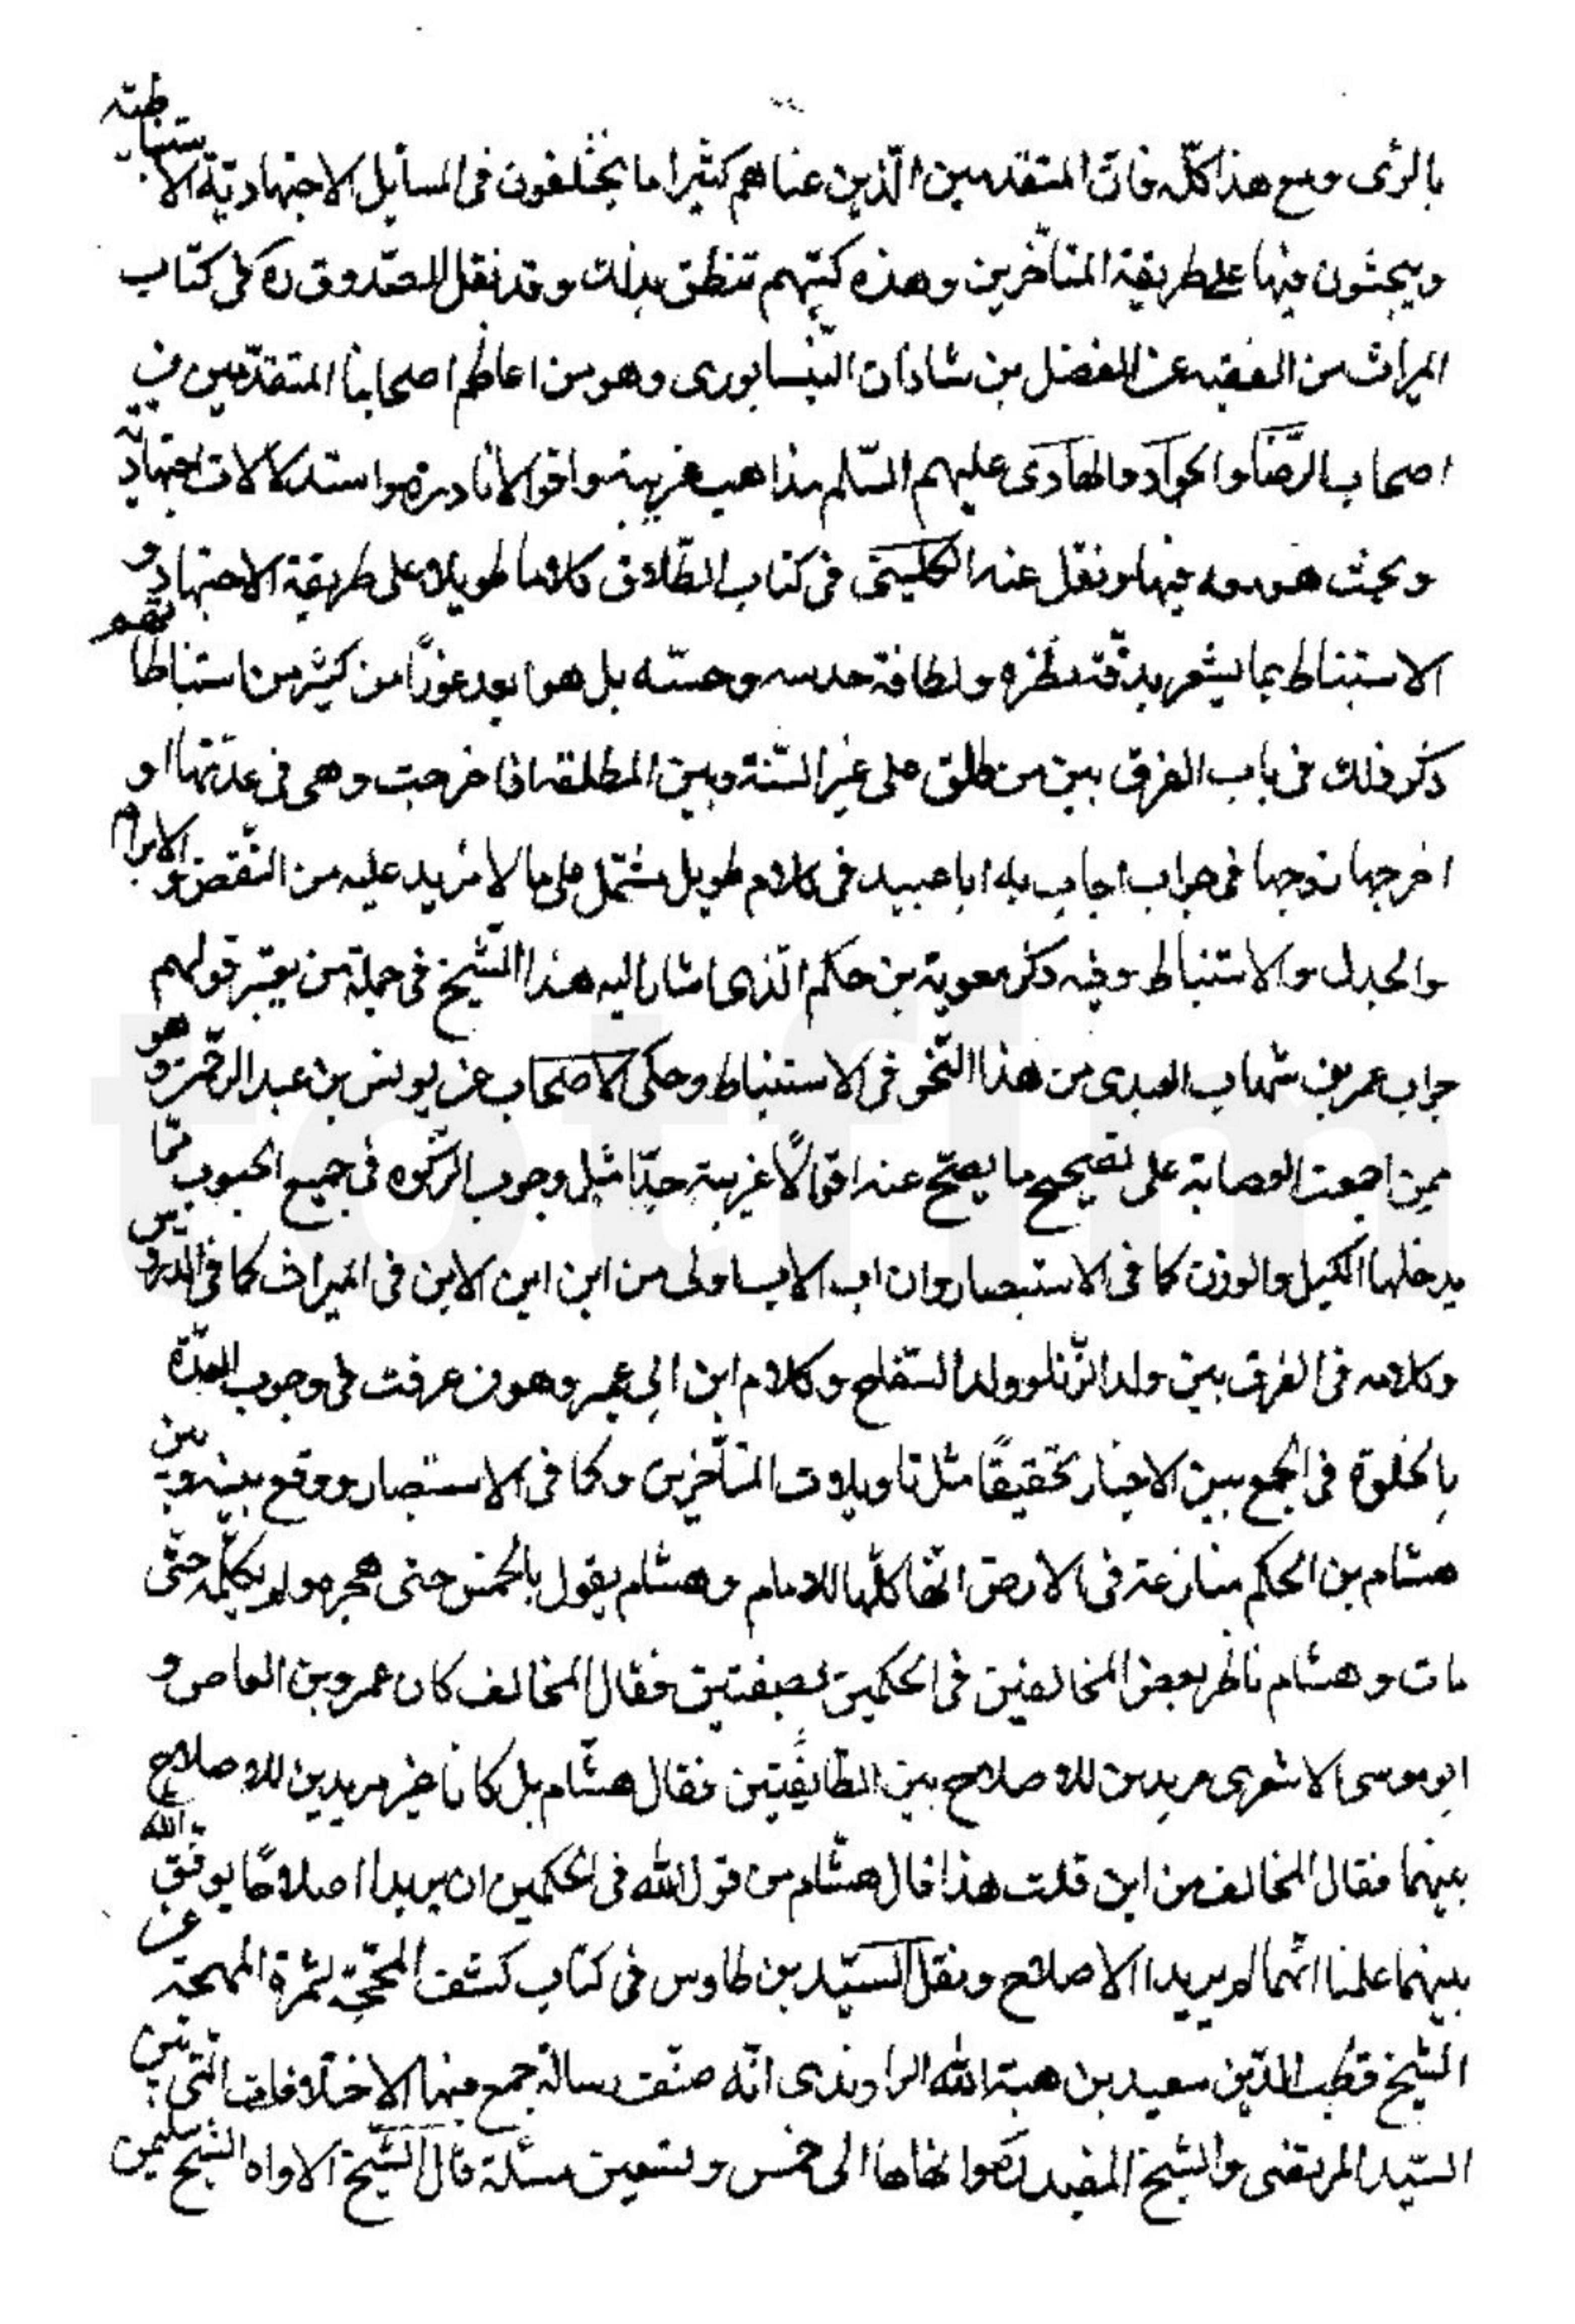 بالرأى ومع هذا كلّه فانّ المتقدمين الّذين عناهم كثيرا ما يختلفون فى المسايل الاجتهاديّة الاستنباطيّة
ويبحثون فيها على طريقة المتأخّرين وهذه كتبهم تنطق بذلك وقد نقل الصّدوق ره فى كتاب
الميراث من الفقيه عن الفضل بن شاذان النّيسابورى وهو من اعاظم اصحابنا المتقدّمين من
اصحاب الرّضا والجواد والهادى عليهم السّلم مذاهب غريبة واقوالا نادرة واستدلالات اجتهاديّة
وبحث هو معه فيها ونقل عنه الكلينى فى كتاب الطّلاق كلاما طويلا على طريقة الاجتهاد و
الاستنباط بما يشعر بدقّة نظره ولطافة حدسه وحسّه بل هو ابعد غورًا من كثير من استنباطاتهم
ذكر ذلك فى باب الفرق بين من طلق على غير السّنة وبين المطلقه اذا خرجت وهى فى عدّتها او
اخرجها زوجها فى جواب اجاب به ابا عبيد فى كلام طويل مشتمل على ما لا مزيد عليه من النّقض والابرام
والجدل والاستنباط وفيه ذكر معوية بن حكم الّذى اشار اليه هذا الشّيخ فى جملة من يعتبر قولهم
جواب عمر بن شهاب العبدى من هذا النّحو فى الاستنباط وحكى الاصحاب عن يونس بن عبد الرّحمن وهو
ممن اجمعت العصابة على تصحيح ما يصحّ عنه اقوالًا غريبة جدّا مثل وجوب الزّكوة فى جميع الحبوب ممّا
يدخلها الكيل والوزن كما فى الاستبصار وان اب الاب اولى من ابن ابن الابن فى الميراث كما فى الدروس
وكلامه فى الفرق بين ولد الزّنا وولد السّفاح وكلام ابن ابى عمير وهو من عرفت فى وجوب العدّة
بالخلوة فى الجمع بين الاخبار تحقيقًا مثل تاويلات المتأخّرين وكما فى الاستبصار ووقع بينه وبين
هشام بن الحكم منازعة فى الارض انّها كلّها للامام وهشام يقول بالخمس حتى هجره ولم يكلّمه حتّى
مات وهشام ناظر بعض المخالفين فى الحكمين بصفين فقال المخالف كان عمرو بن العاص و
ابو موسى الاشعرى مريدين للاصلاح بين الطّايفتين فقال هشّام بل كانا غير مريدين للاصلاح
بينهما فقال المخالف من اين قلت هذا قال هشّام من قول الله فى الحكمين ان يريدا اصلاحًا يوفّق الله
بينهما علمنا انّهما لم يريدا الاصلاح ونقل السّيّد بن طاوس فى كتاب كشف المحجّة لثمرة المهجة عن
الشّيخ قطب الدّين سعيد بن هبة الله الراوندى انّه صنّف رسالة جمع فيها الاختلافات الّتى بين
السّيّد المرتضى والشّيخ المفيد انهاها الى خمس وتسعين مسئلة قال الشّيخ الاواه الشيخ سليمن